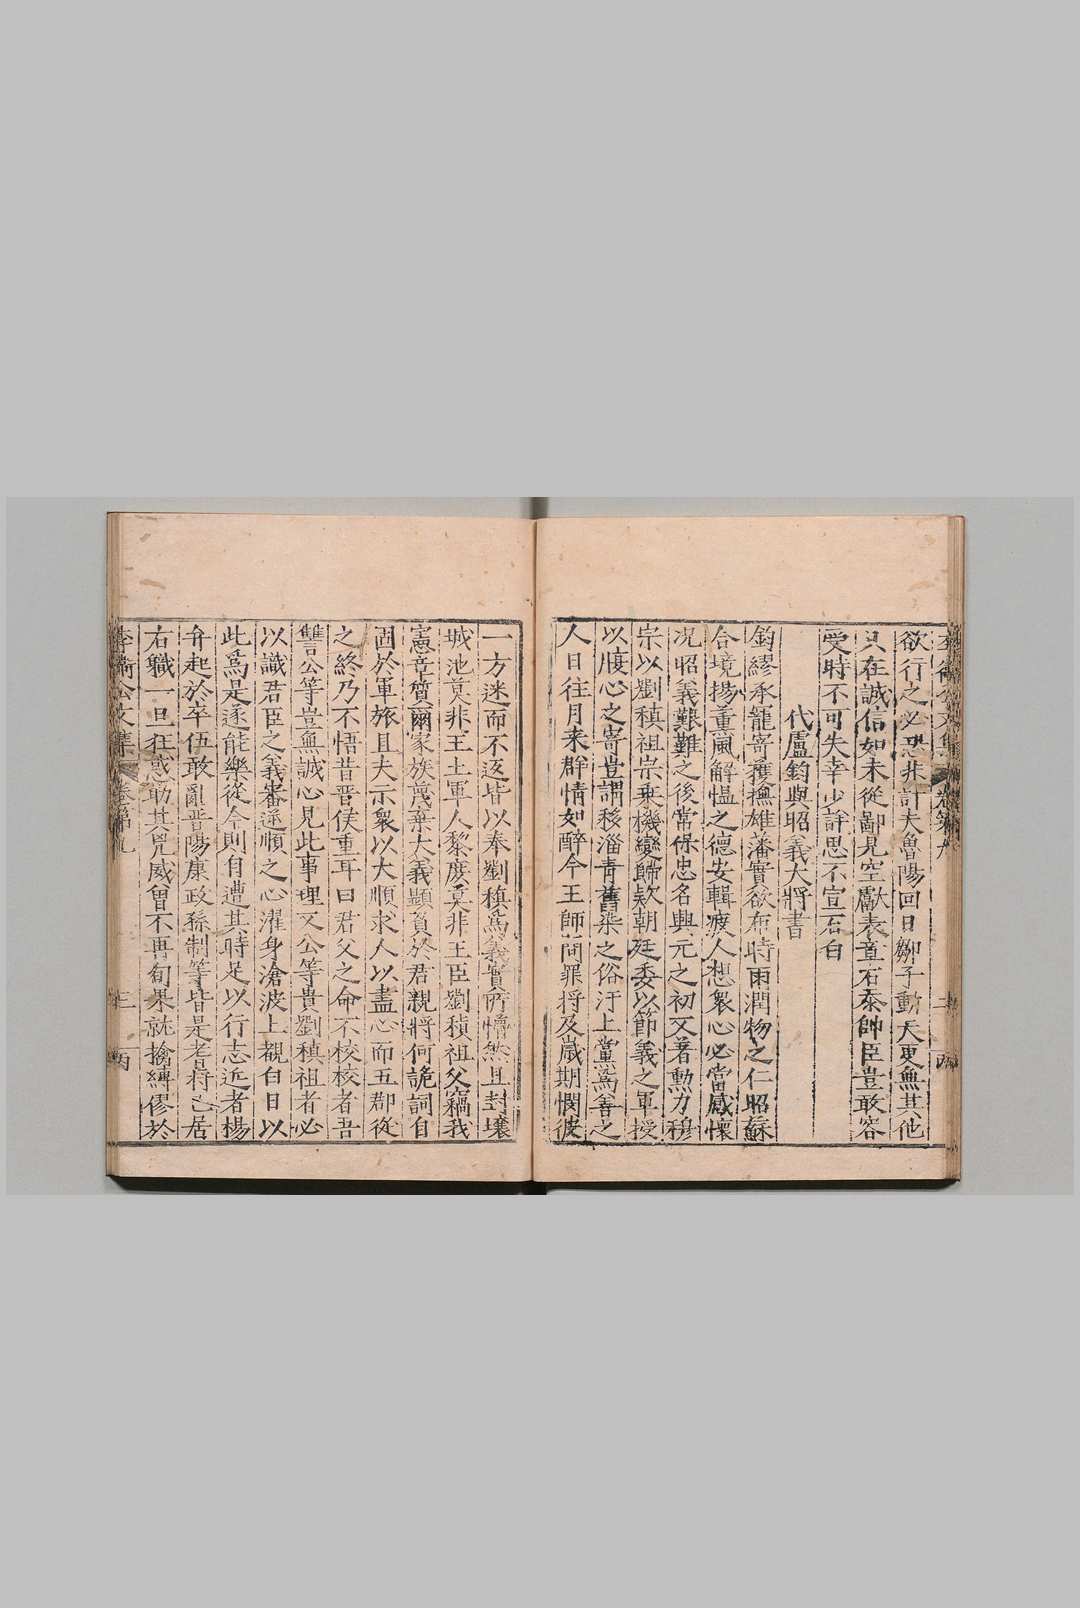 欲行之必恐非計夫魯陽回日鄒子動天更無其他
只在誠信如未從鄙見空獻表章石泰帥臣豈敢容
受時不可失幸少詳思不宣石白
代盧鈞與昭義大將書
鈞繆承寵寄獲撫雄藩實欲布時雨潤物之仁昭蘇
合境揚薫風解慍之德安輯疲人想衆心必當感懷
况昭義艱難之後常保忠名興元之初又著勳力穆
宗以劉稹祖宗乗機變歸欵朝廷委以節義之軍授
以腹心之寄豈謂移淄青舊染之俗汙上黨為善之
人日往月来群情如醉今王師問罪将及歲期憫彼
一方迷而不返皆以奉劉稹為義實所懵然且封壤
城池莫非王土軍人黎庶莫非王臣劉稹祖父竊我
憲章質爾家族蔑棄大義顯負於君親將何詭詞自
固於軍旅且夫示衆以大順求人以盡心而五郡從
之終乃不悟昔晋侯重耳曰君父之命不校校者吾
讐公等豈無誠心見此事理又公等貴劉稹祖者必
以識君臣之義審逆順之心濯身滄波上覩白日以
此為是遂能樂從今則自遭其時足以行志近者楊
弁起於卒伍敢亂晋陽康政孫制等皆是老将已居
右職一旦狂惑助其兇威曾不再旬果就擒縛僇於
李衛公文集 卷第九
三